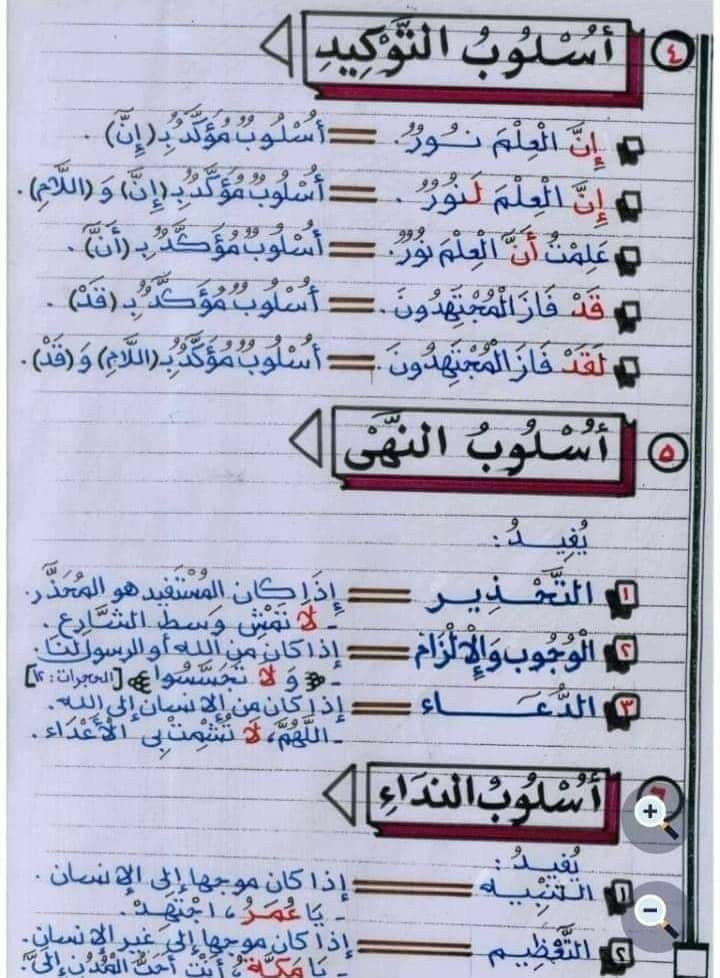 ٤ أُسْلُوبُ التَّوْكِيدِ
إِنَّ الْعِلْمَ نُورٌ. = أُسْلُوبٌ مُؤَكَّدٌ بِـ(إِنَّ).
إِنَّ الْعِلْمَ لَنُورٌ. = أُسْلُوبٌ مُؤَكَّدٌ بِـ(إِنَّ) وَ (اللَّامِ).
عَلِمْتُ أَنَّ الْعِلْمَ نُورٌ. = أُسْلُوبٌ مُؤَكَّدٌ بِـ (أَنَّ).
قَدْ فَازَ الْمُجْتَهِدُونَ. = أُسْلُوبٌ مُؤَكَّدٌ بِـ (قَدْ).
لَقَدْ فَازَ الْمُجْتَهِدُونَ. = أُسْلُوبٌ مُؤَكَّدٌ بِـ(اللَّامِ) وَ (قَدْ).
٥ أُسْلُوبُ النَّهْى
يُفِيدُ:
١ التَّحْذِير = إِذَا كان المُسْتَفِيد هو المُحَذَّر.
- لَا تَمْشِ وَسط الشَّارِع.
٢ الْوُجُوب وَالْإِلْزَام = إذا كان من الله أو الرسول لنا.
- ﴿ وَ لَا تَجَسَّسُوا ﴾ [الحجرات: ١٢]
٣ الدُّعَاء = إذا كان من الإنسان إلى الله.
- اللَّهُمَّ، لَا تُشْمِتْ بِى الْأَعْدَاء.
٦ أُسْلُوبُ النداءِ
يُفيدُ:
١ التنبيه = إذا كان موجها إلى الإنسان.
- يَا عُمَرُ، اجْتَهِدْ.
٢ التَّعْظِيم = إذا كان موجها إلى غير الإنسان.
- يَا مَكَّةُ، أَنْتِ أَحَبُّ الْمُدُنِ إِلَىَّ.